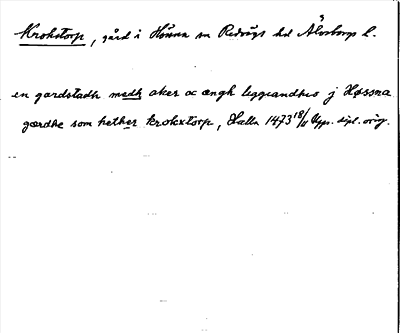 Krokstorp, gård i Hössna sn Redvägs hd Älvsborgs l.
en gardstadh medh aker oc ængh liggiandhes j Høssna
gærdhe som hether krokxtorp, Hælla 1473 18/11 Upps. dipl. orig.